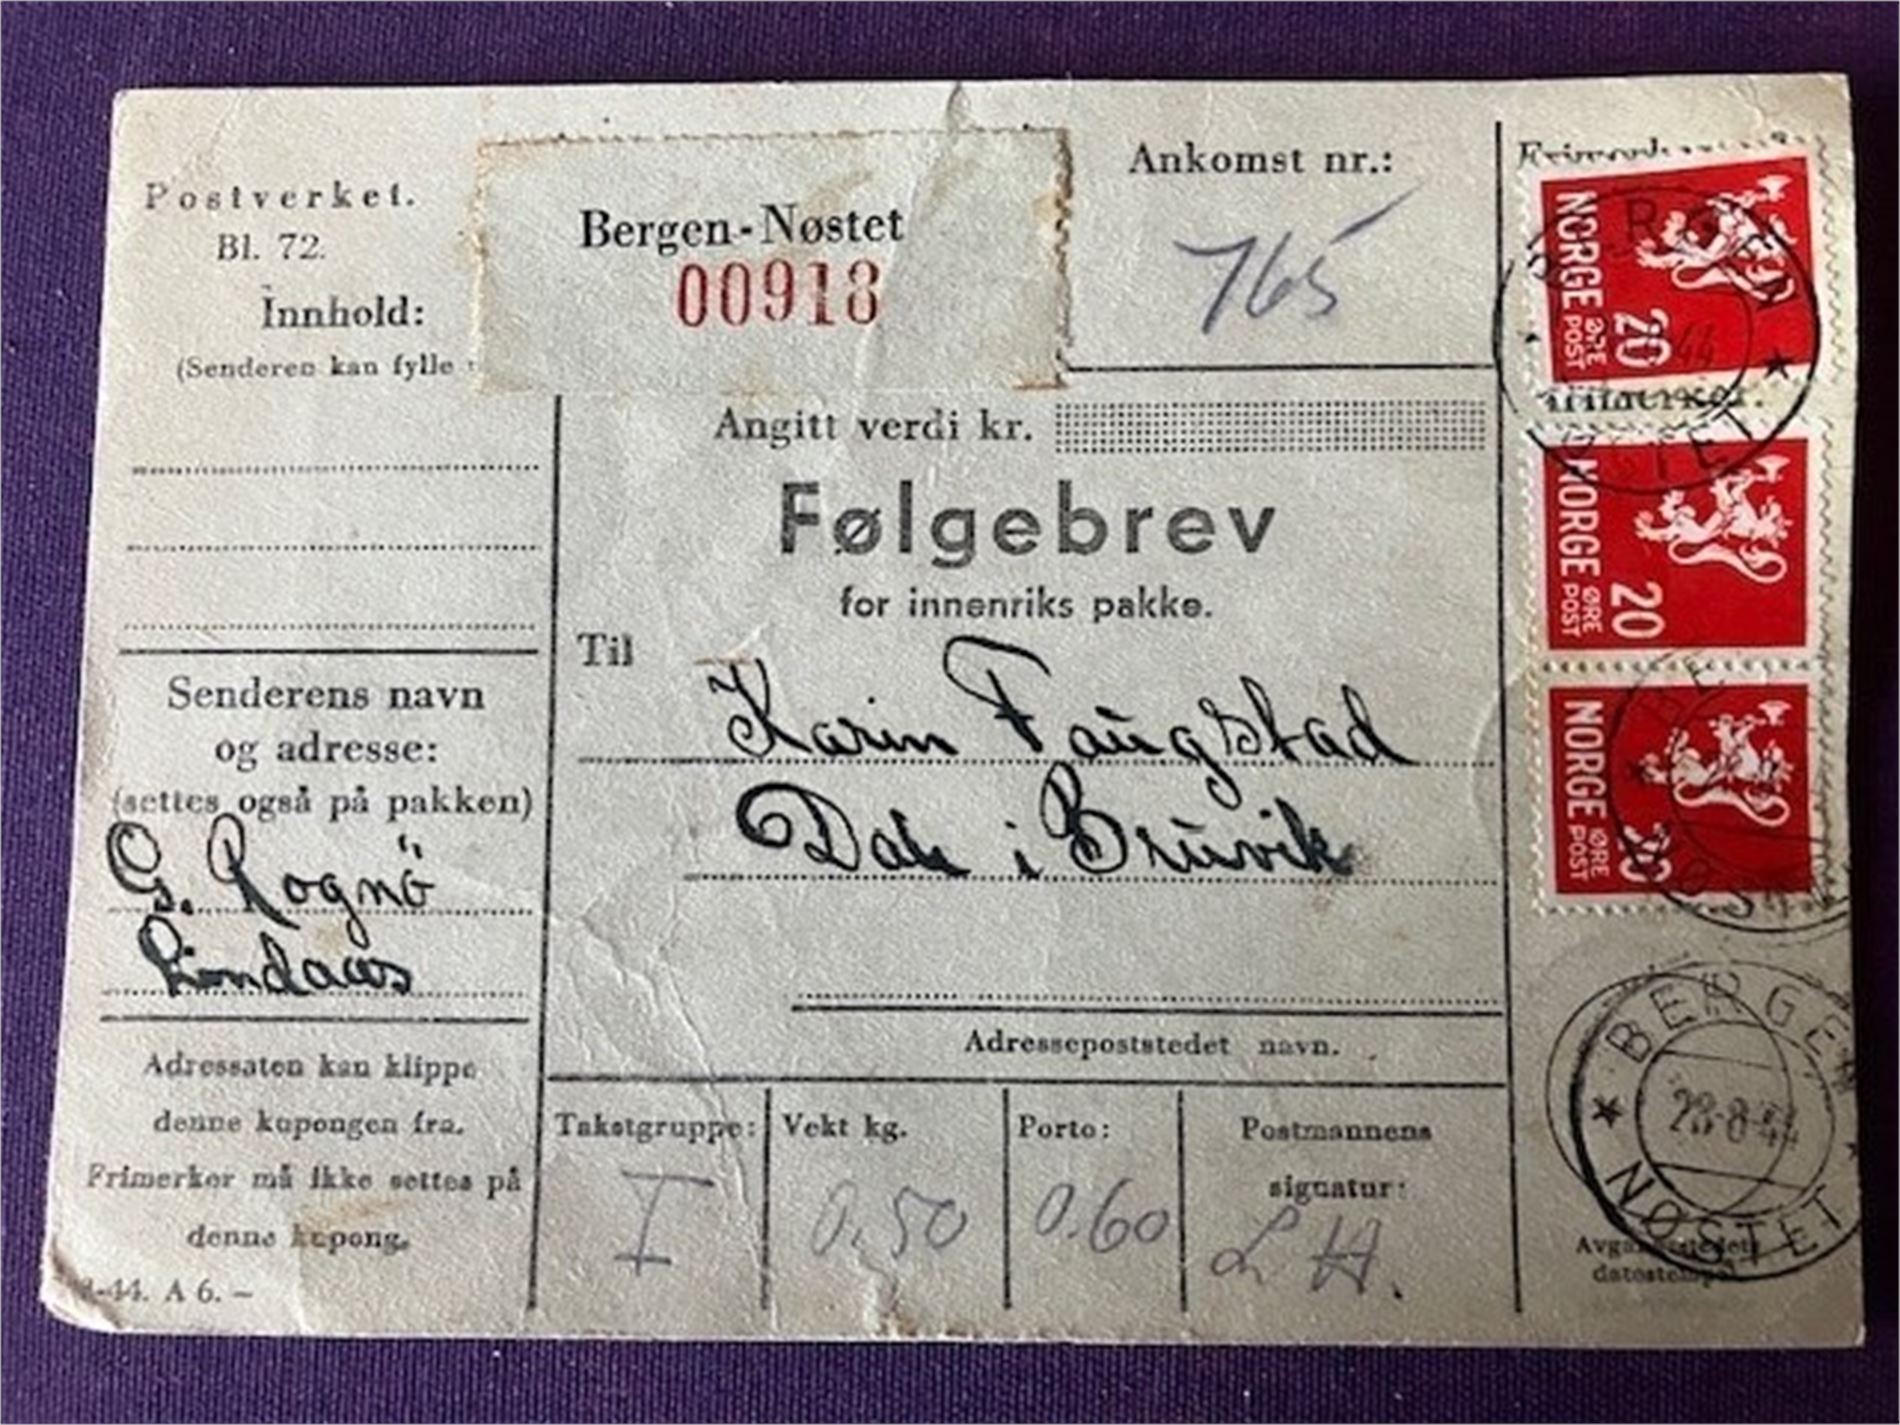 Postverket.
Bl. 72.
Innhold:
(Senderen kan fylle
Bergen-Nøstet
00918
Ankomst nr.:
765
Angitt verdi kr.
Følgebrev
for innenriks pakke.
Til
Karin Faugstad
Dale i Bruvik
Adressepoststedet navn.
Senderens navn
og adresse:
(settes også på pakken)
G. Rognö
Lindaas
Adressaten kan klippe
denne kupongen fra.
Frimerker må ikke settes på
denne kupong.
-44. A 6. –
Takstgruppe:
I
Vekt kg.
0.50
Porto:
0.60
Postmannens
signatur:
L H.
NORGE
20 ØRE
POST
BERGEN
NØSTET
44
frimerker.
NORGE
20 ØRE
POST
NORGE
20 ØRE
POST
BERGEN
28-8-44
NØSTET
Avgangsstedets
datostempel